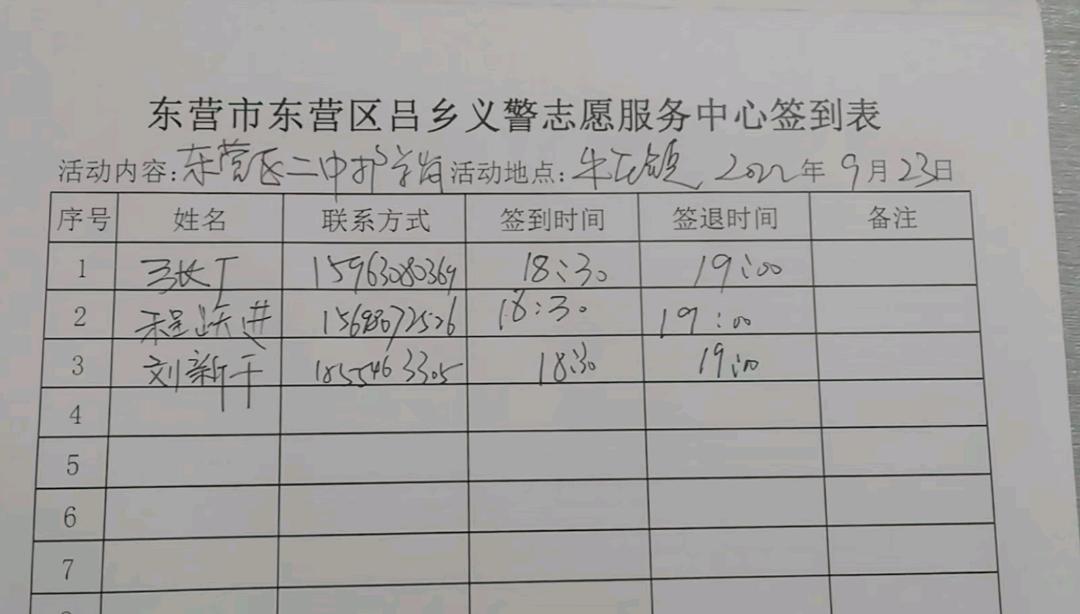 东营市东营区吕乡义警志愿服务中心签到表
活动内容:东营区二中护学岗 活动地点:牛庄镇 2022年9月23日
序号 姓名 联系方式 签到时间 签退时间 备注
1 15963080369 18:30 19:00
2 程跃进 18:30 19:00
3 刘新千 18:30 19:00
4
5
6
7